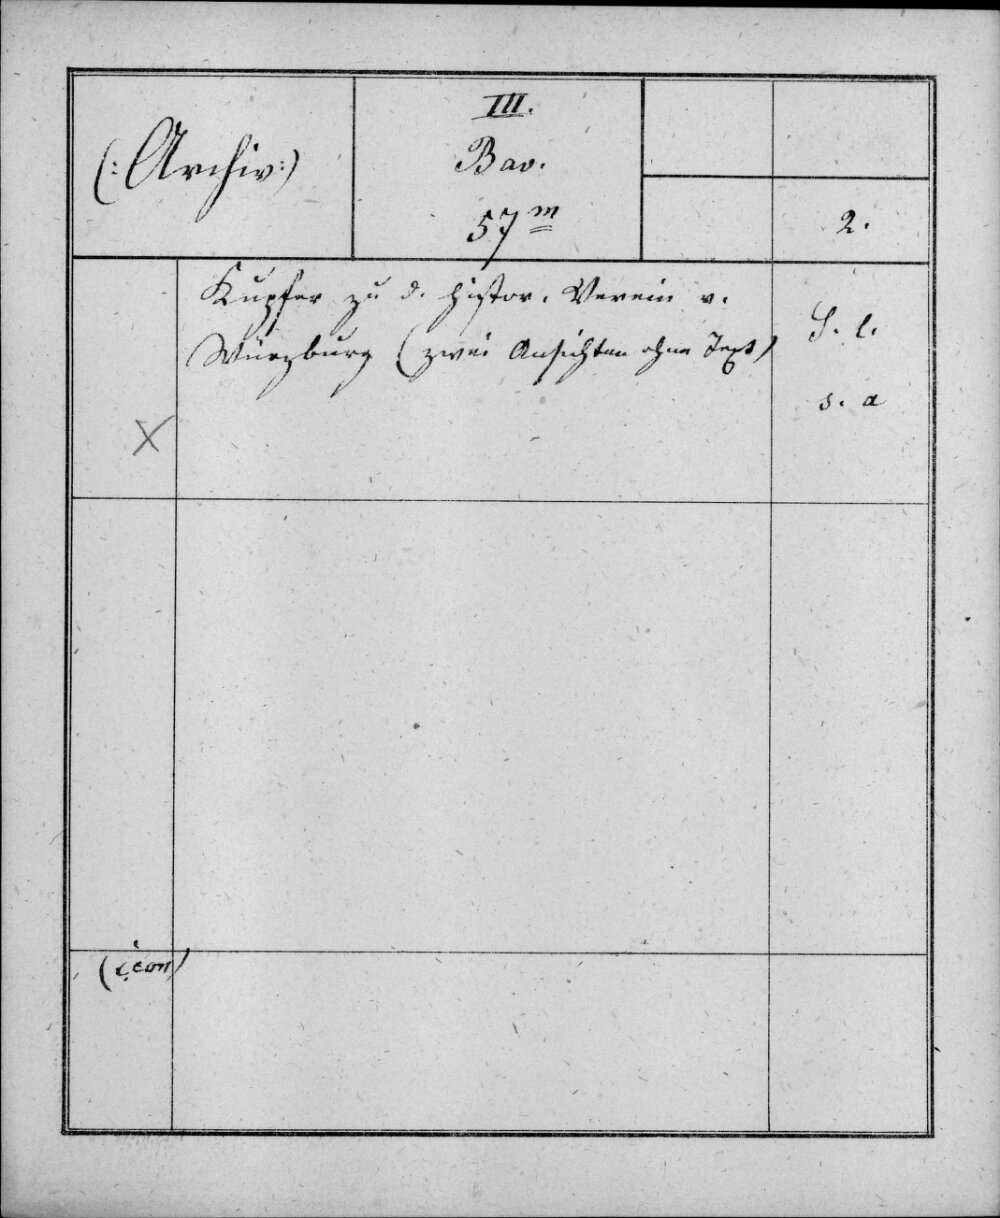 (: Archiv :)
III.
Bav.
57 m
2.
Kupfer zu d. histor. Verein v.
Würzburg (zwei Ansichten ohne Text)
S. l.
s. a
X
(icon)